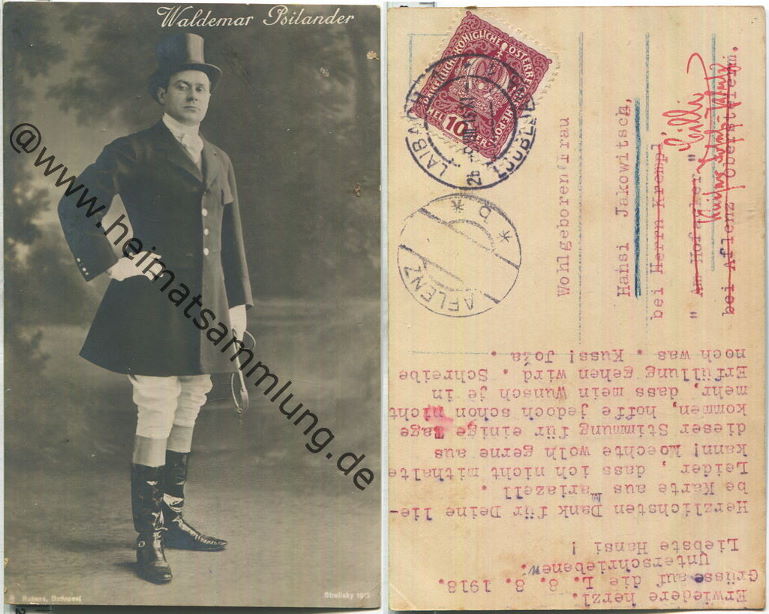 Waldemar Psilander
@www.heimatsammlung.de
Budapest
Strelisky 1912
KAISERLICHE KÖNIGLICHE ÖSTERREICHISCHE POST
10
HELLER
LAIBACH
LJUBLJANA
AFLENZ
* b *
Wohlgeborenfrau
Hansi Jakowitsch,
bei Herrn Krempl
"Am Hofacker"
bei Aflenz Obersteierm.
Cilli
Erwiedere herzl.
Grüsse auf die L. 8. 8. 1918.
unterschriebenen.
Liebste Hansi !
Herzlichsten Dank für Deine lie-
be Karte aus Mariazell .
Leider , dass ich nicht mithalte
kann! Moechte wolh gerne aus
dieser Stimmung für einige Tage
kommen, hoffe jedoch schon nicht
mehr, dass mein Wunsch je in
Erfüllung gehen wird . Schreibe
noch was . Kuss! Joža .